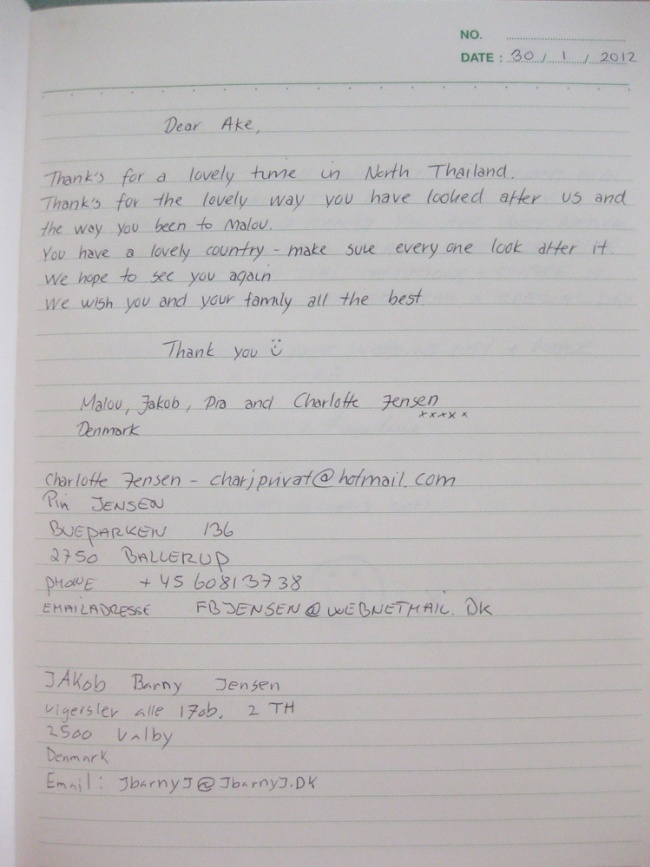 NO.
DATE : 30 / 1 / 2012
Dear Ake,
Thank's for a lovely time in North Thailand.
Thank's for the lovely way you have looked after us and
the way you been to Malou.
You have a lovely country - make sure every one look after it.
We hope to see you again
We wish you and your family all the best.
Thank you
Malou, Jakob, Pia and Charlotte Jensen
xxxxx
Denmark
Charlotte Jensen - charjprivat@hotmail.com
JENSEN
BUEPARKEN 136
2750 BALLERUP
PHONE +45 60813738
EMAILADRESSE FBJENSEN@WEBNETMAIL.DK
JAKob Barny Jensen
vigersler alle 170b, 2 TH
2500 Valby
Denmark
Email: JbarnyJ@JbarnyJ.DK